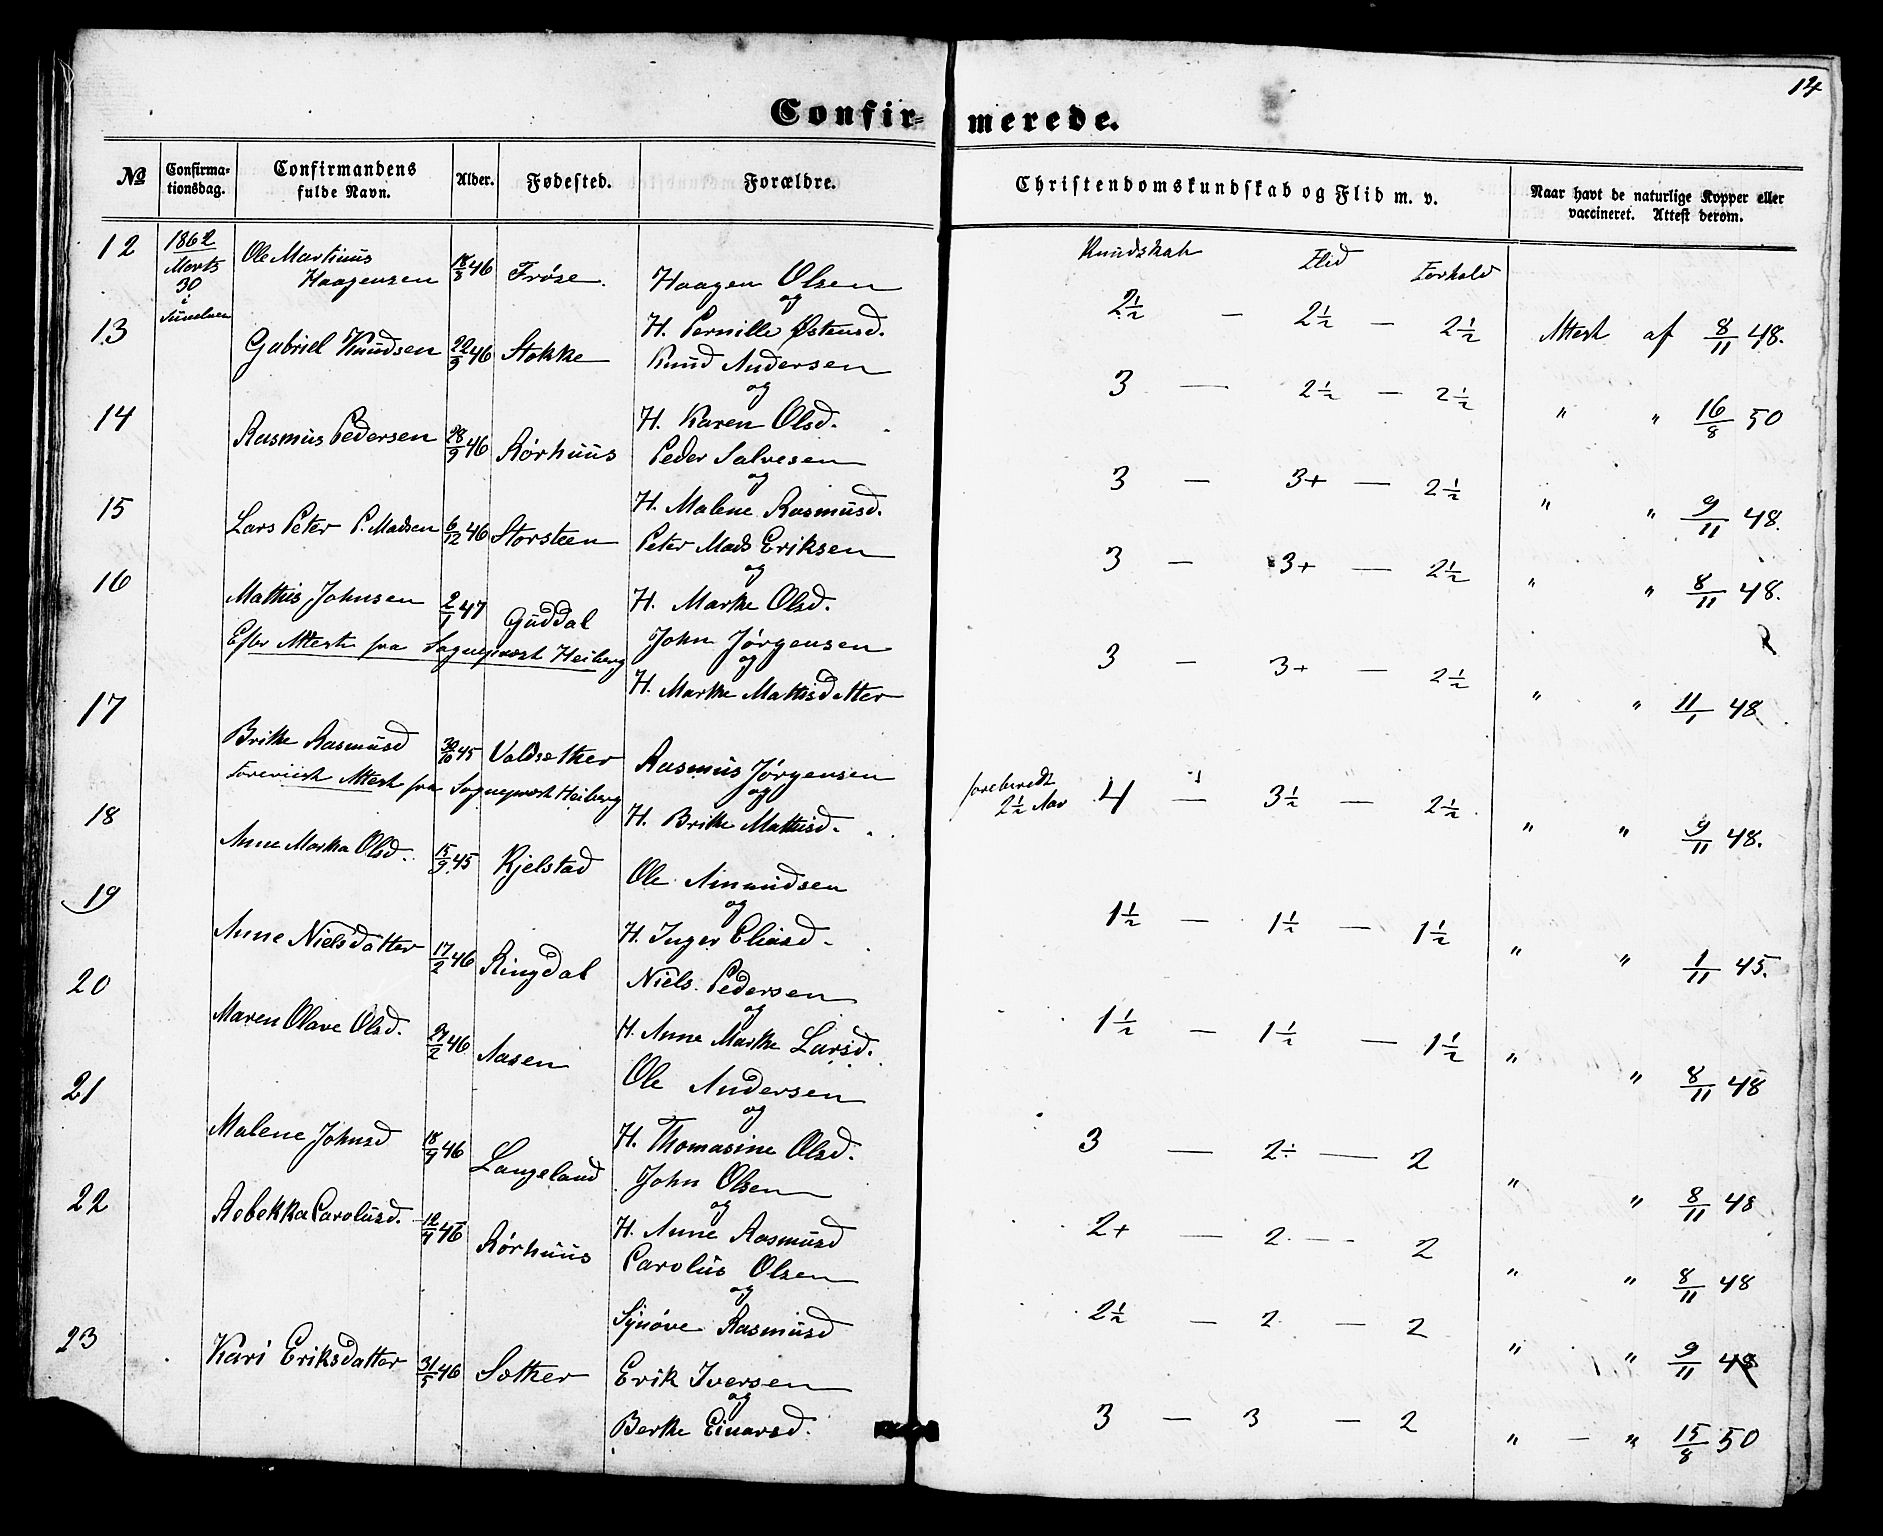 14
Confirmerede.
№ Confirmationsdag. Confirmandens fulde Navn. Alder. Fødested. Forældre. Christendomskundskab og Flid m. v. Naar havt de naturlige Kopper eller vaccineret. Attest derom.
Kundskab Flid Forhold
12 1862 Marts 30 i Ole Martinus Haagensen 18/3 46 Frøse. Haagen Olsen
og
H. Pernille Østensd. 2½ — 2½ — 2½ Attest af 8/11 48.
13 Gabriel Knudsen 22/9 46 Stokke Knud Andersen
og
H. Karen Olsd. 3 — 2½ — 2½ " " 16/8 50
14 Rasmus Pedersen 28/9 46 Rørhuus Peder Salvesen
og
H. Malene Rasmusd. 3 — 3+ — 2½ " " 9/11 48.
15 Lars Peter P. Madsen 6/12 46 Storsteen Peter Mads Eriksen
og
H. Marthe Olsd. 3 — 3+ — 2½ " " 8/11 48.
16 Mathis Johnsen 2/1 47 Guddal John Jørgensen
Efter Attest fra Sogneprest Heiberg
og
H. Marthe Mathisdatter 3 — 3+ — 2½ " " 11/1 48
17 Brithe Rasmusd 30/10 45 Valdsæther Rasmus Jørgensen
Foreviist Attest fra Sogneprest Heiberg
og
H. Brithe Mathisd. foreberedt 2½ Aar 4 — 3½ — 2½ " " 9/11 48.
18 Anne Martha Olsd. 15/9 45 Kjelstad Ole Amundsen
og
H. Inger Eliasd. 1½ — 1½ — 1½ " " 1/11 45.
19 Anne Nielsdatter 17/2 46 Ringdal Niels Pedersen
og
H. Anne Marthe Larsd. 1½ — 1½ — 1½ " " 8/11 48
20 Maren Olave Olsd. 24/2 46 Aasen Ole Andersen
og
H. Thomasine Olsd. 3 — 2÷ — 2 " " 8/11 48
21 Malene Johnsd 18/4 46 Langeland John Olsen
og
H. Anne Rasmusd 2+ — 2 — 2 " " 8/11 48
22 Rebekka Carolusd. 12/4 46 Rørhuus Carolus Olsen
og
Synøve Rasmusd 2½ — 2 — 2 " " 9/11 48
23 Kari Eriksdatter 31/5 46 Sæther Erik Iversen
og
Berthe Einarsd. 3 — 3 — 2 " — " 15/8 50